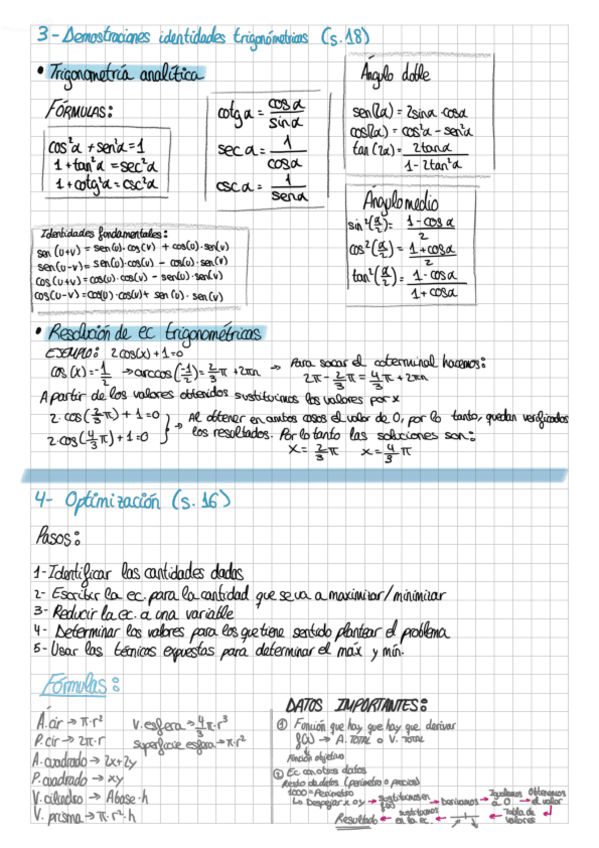 3 - Demostraciones identidades trigonómetricas (s.18)
• Trigonometría analítica
FÓRMULAS:
cos²α + sen²α = 1
1 + tan²α = sec²α
1 + cotg²α = csc²α
cotg α = cos α / sin α
sec α = 1 / cos α
csc α = 1 / sen α
Ángulo doble
sen(2α) = 2sinα · cosα
cos(2α) = cos²α - sen²α
tan(2α) = 2tanα / 1 - 2tan²α
Ángulo medio
sin²(α/2) = 1 - cos α / 2
cos²(α/2) = 1 + cos α / 2
tan²(α/2) = 1 - cos α / 1 + cos α
Identidades fundamentales:
sen (u+v) = sen(u) · cos(v) + cos(u) · sen(v)
sen(u-v) = sen(u) · cos(u) - cos(u) · sen(v)
cos(u+v) = cos(u) · cos(v) - sen(u) · sen(v)
cos(u-v) = cos(u) · cos(v) + sen(u) · sen(v)
• Resolución de ec trigonométricas
EJEMPLO: 2cos(x) + 1 = 0
cos(x) = -1/2 → arccos(-1/2) = 2/3 π + 2πn → Para sacar el coterminal hacemos:
2π - 2/3 π = 4/3 π + 2πn
A partir de los valores obtenidos sustituimos los valores por x
2 · cos(2/3 π) + 1 = 0
2 · cos(4/3 π) + 1 = 0
→ Al obtener en ambos casos el valor de 0, por lo tanto, quedan verificados
los resultados. Por lo tanto las soluciones son:
x = 2/3 π x = 4/3 π
4 - Optimización (s.16)
Pasos:
1 - Identificar las cantidades dadas
2 - Escribir la ec. para la cantidad que se va a maximizar/minimizar
3 - Reducir la ec. a una variable
4 - Determinar los valores para los que tiene sentido plantear el problema
5 - Usar las técnicas expuestas para determinar el max y mín.
Fórmulas:
A. cir → π · r²
P. cir → 2π · r
A. cuadrado → 2x + 2y
P. cuadrado → xy
V. cilindro → Abase · h
V. prisma → π · r² · h
V. esfera → 4/3 π · r³
Superficie esfera → π · r²
DATOS IMPORTANTES:
① Función que hay que hay que derivar
f(x) → A. TOTAL o V. TOTAL
Función objetivo
② Ec con otros datos
Resto de datos (perímetro o precios)
1000 = Perímetro
Lo Despejar x o y → Sustituimos en f(x) → Derivamos → Igualamos a 0 → Obtenemos el valor
Resultado ← sustituimos en la ec. ← Tabla de valores